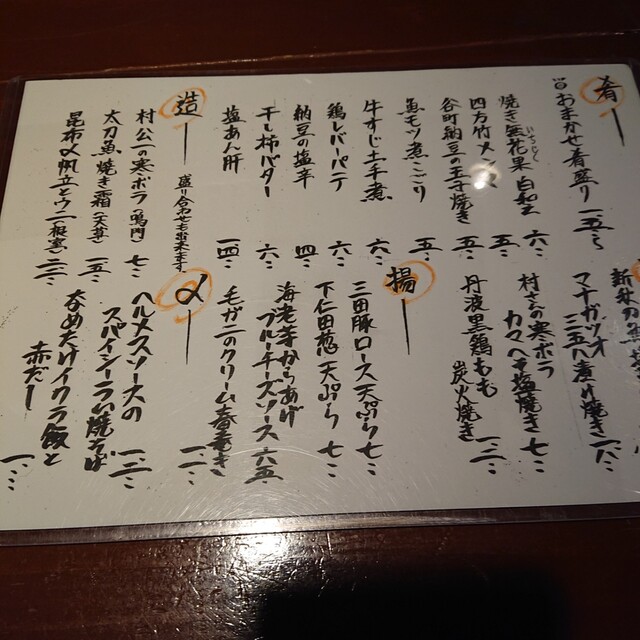 肴
おまかせ肴盛り 一五〇〇
焼き無花果白和え 六〇〇
いちじく
四方竹メンマ 五〇〇
谷町納豆の玉子焼き 五〇〇
魚モツ煮こごり 五〇〇
牛すじ土手煮 六〇〇
鶏レバーパテ 六〇〇
納豆の塩辛 四〇〇
干し柿バター 六〇〇
塩あん肝 一四〇〇
造
盛り合わせも出来ます
村公一の寒ボラ(鳴門) 七〇〇
太刀魚焼き霜(天草) 一五〇〇
昆布〆帆立とウニ(根室) 二二〇〇
マナガツオ
三五八漬け焼き 一八〇〇
村さんの寒ボラ
カマヘキ塩焼き 七〇〇
丹波黒鶏もも
炭火焼き 一二〇〇
揚
三田豚ロース天ぷら 七〇〇
下仁田葱天ぷら 七〇〇
海老芋からあげ
ブルーチーズソース 六五〇
毛ガニのクリーム春巻き 一一〇〇
〆
ヘルメスソースの
スパイシーラム焼そば 一二〇〇
呑めたけイクラ飯と
赤だし 一八〇〇